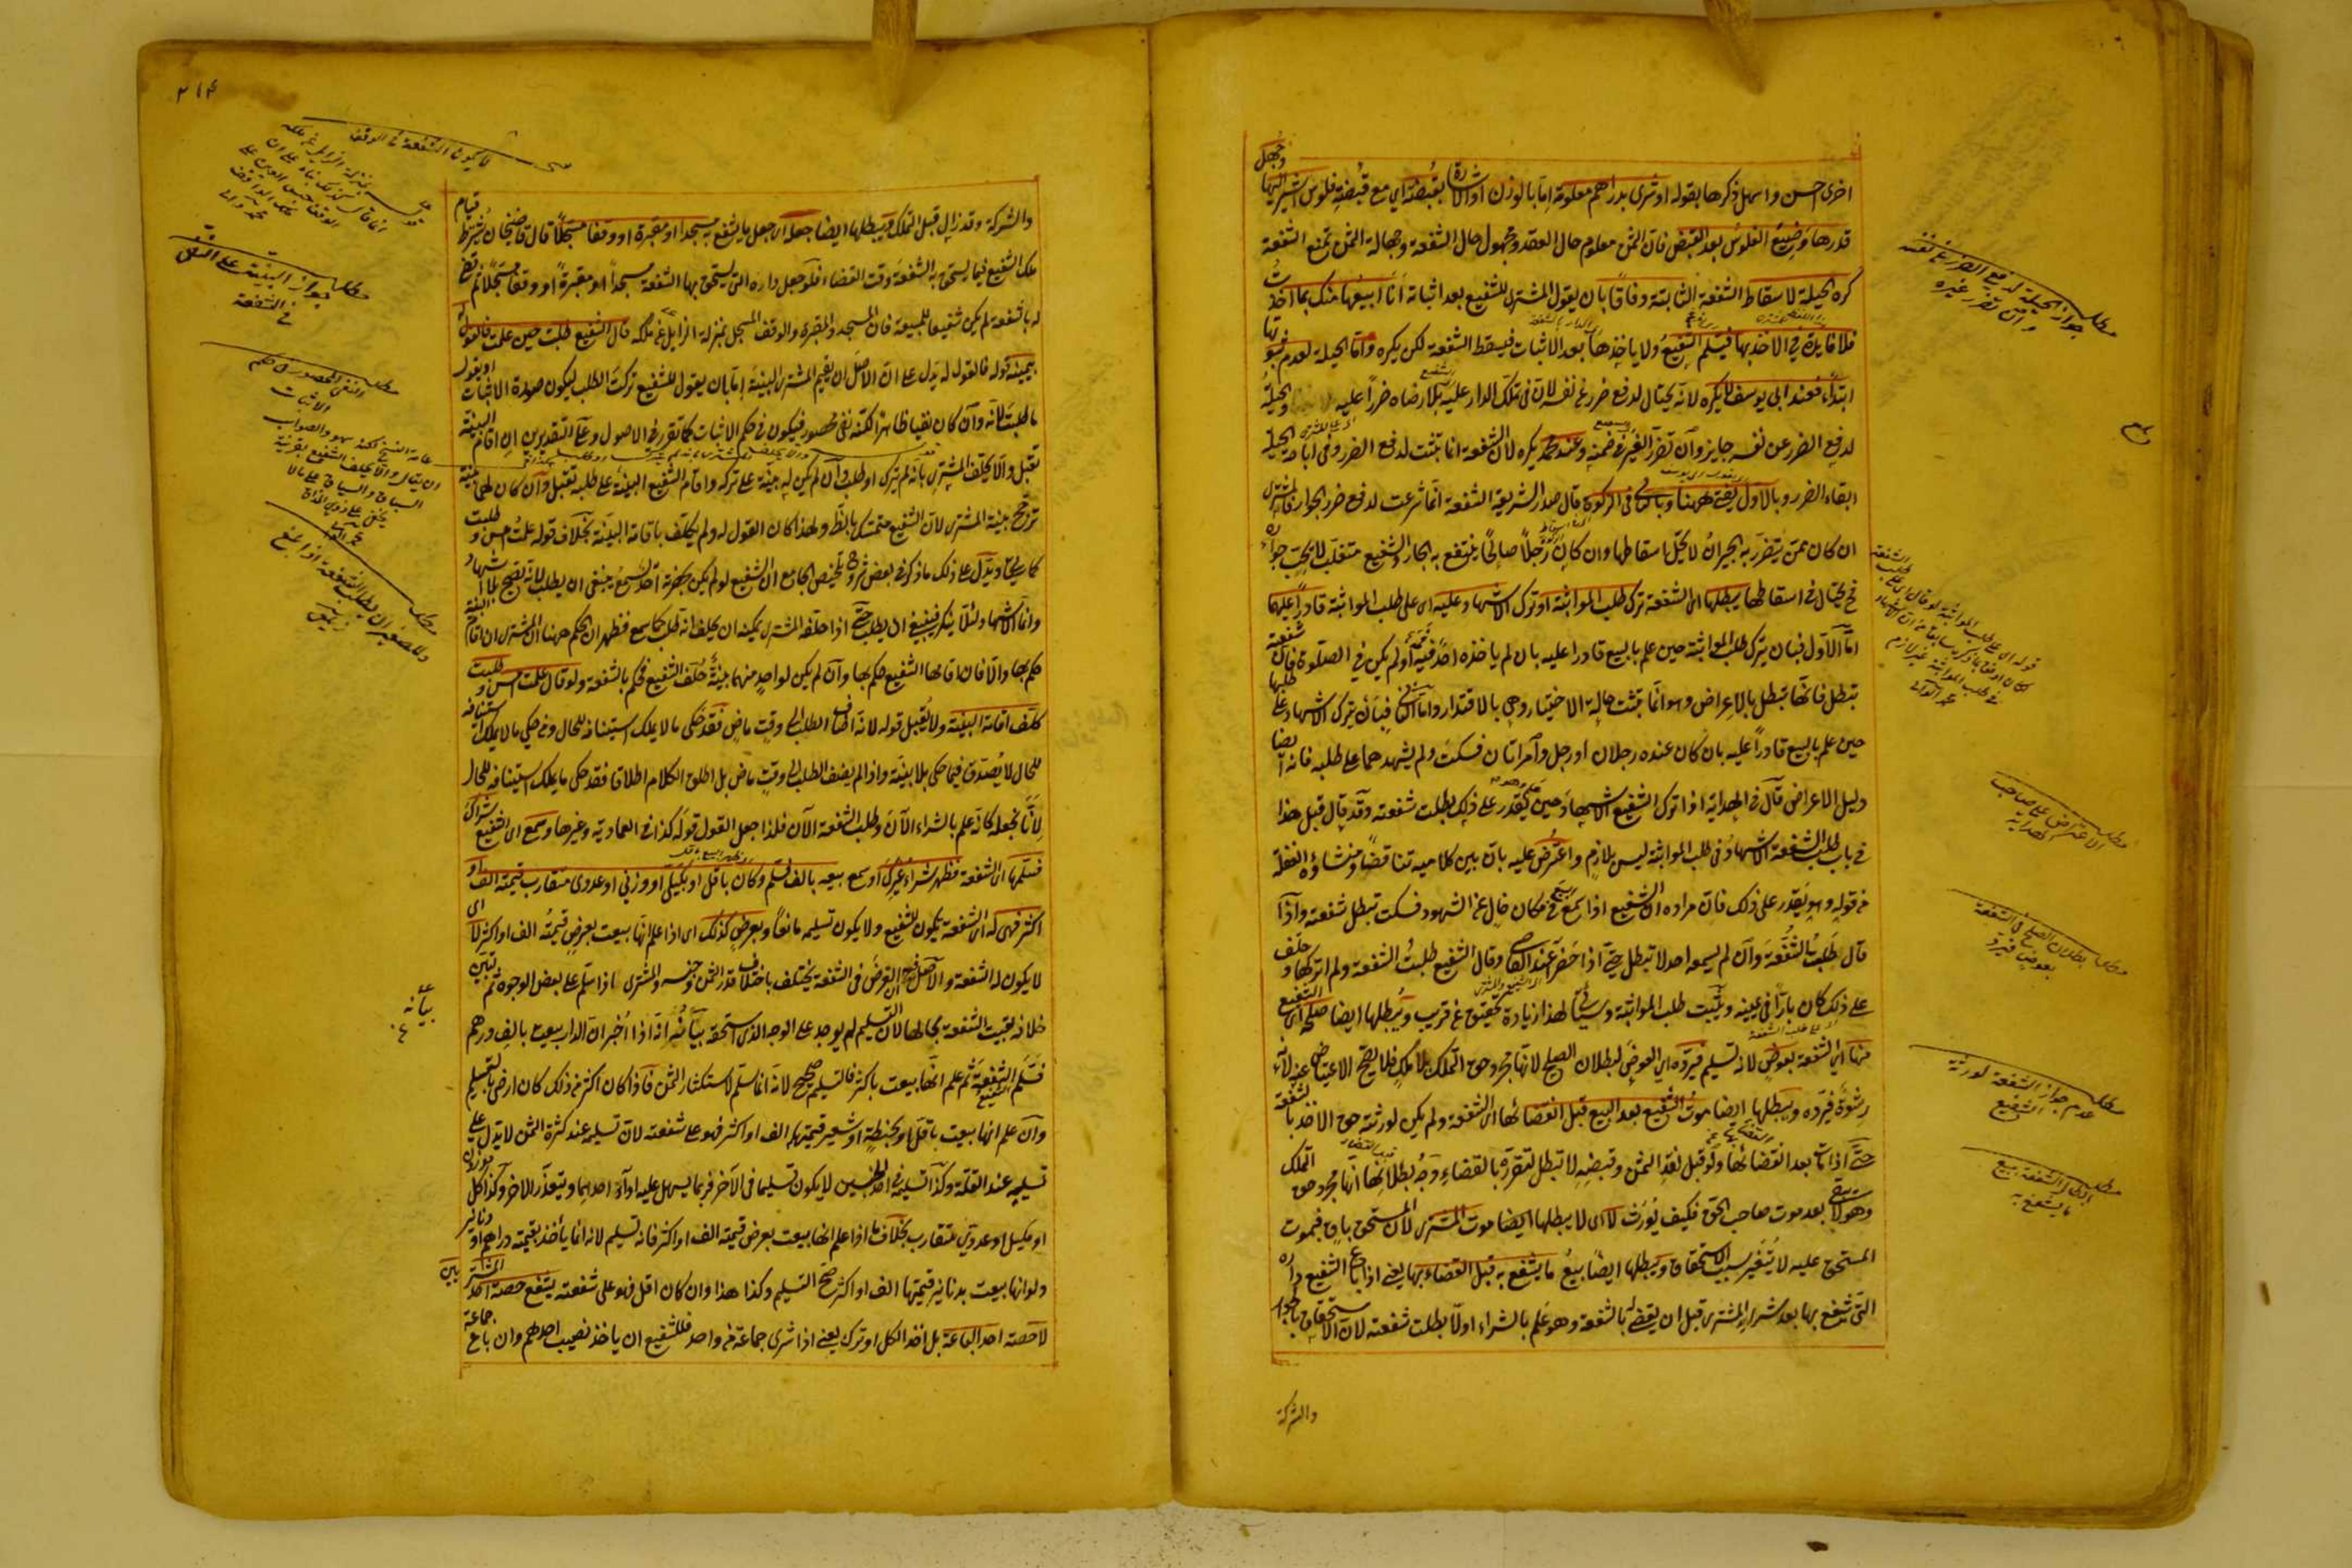 اخرى احسن واسهل ذكرها بقوله او شرى بدراهم معلومة اما بالوزن او الاشارة بقبضة اي مع قبضة فلوس اشير اليها وجهل
قدرها وضيع الفلوس بعد القبض فان الثمن معلوم حال العقد ومجهول حال الشفعة وجهالة الثمن تمنع الشفعة
كره الحيلة لاسقاط الشفعة الثابتة وفاقا بان يقول المشتري للشفيع بعد اثباته انا ابيعها منك بما اخذت
فلا فايدة في الاخذ بها فيسلم الشفيع ولا ياخذها بعد الاثبات فيسقط الشفعة لكن يكره واما الحيلة لعدم ثبوتها
ابتداء فعند ابي يوسف لا يكره لانه يحتال لدفع ضرر عن نفسه لان في تملك الدار عليه بلا رضاه ضررا عليه والحيلة
لدفع الضرر عن نفسه جايز وان تضرر الغير في ضمنه وعند محمد يكره لان الشفعة انما تثبت لدفع الضرر وفي اباحة الحيلة
ابقاء الضرر وبالاول يفتى ههنا وبالثاني في الزكوة قال صدر الشريعة الشفعة انما شرعت لدفع ضرر الجوار فالمشتري
ان كان ممن يتضرر به الجيران لا يحل اسقاطها وان كان رجلا صالحا ينتفع به الجار والشفيع متغلب لا يحب جواره
فح يحتال في اسقاطها يبطلها اى الشفعة ترك طلب المواثبة او ترك الاشهاد عليه اى على طلب المواثبة قادرا عليهما
اما الاول فبان يترك طلب المواثبة حين علم بالبيع قادرا عليه بان لم ياخذه احد فمه او لم يكن في الصلوة فان شفعته
تبطل فانها تبطل بالاعراض وهو انما يثبت حالة الاختيار وهي بالاقتدار واما الثاني فبان يترك الاشهاد على طلبها
حين علم بالبيع قادرا عليه بان كان عنده رجلان او رجل وامراتان فسكت ولم يشهد هما على طلبه فانه ايضا
دليل الاعراض قال في الهداية اذا ترك الشفيع الاشهاد حين علم وهو يقدر على ذلك بطلت شفعته وقد قال قبل هذا
في باب طلب الشفعة الاشهاد في طلب المواثبة ليس بلازم واعترض عليه بان بين كلاميه تناقضا ومنشاؤه الغفلة
من قوله وهو يقدر على ذلك فان مراده ان الشفيع اذا سمع البيع في مكان خال عن الشهود فسكت تبطل شفعته واذا
قال طلبت الشفعة وان لم يسمعه احد لا تبطل حتى اذا حضر عند القاضي وقال الشفيع طلبت الشفعة ولم اتركها وحلف
على ذلك كان بارا في يمينه ويثبت طلب المواثبة وسياتي لهذا زيادة تحقيق عن قريب ويبطلها ايضا صلحه اى الشفيع
منها اى الشفعة بعوض لانه تسليم فيرده اي العوض لبطلان الصلح لانها مجرد حق التملك بلا ملك فلا يصح الاعتياض عنه لانه
رشوة فيرده ويبطلها ايضا موت الشفيع بعد البيع قبل القضاء بها اى الشفعة ولم يكن لورثته حق الاخذ بالشفعة
حتى اذا مات بعد القضاء بها ولو قبل نقد الثمن وقبضه لا تبطل لتقرره بالقضاء وجه بطلانها انها مجرد حق التملك
وهو لا يبقى بعد موت صاحب الحق فكيف يورث لا اى لا يبطلها ايضا موت المشتري لان المستحق باق فبموت
المستحق عليه لا يتغير سبب الاستحقاق ويبطلها ايضا بيع ما يشفع به قبل القضاء بها يعني اذا باع الشفيع داره
التي تشفع بها بعد شراء المشتري قبل ان يقضى له بالشفعة وهو علم بالشراء اولا بطلت شفعته لان الاستحقاق بالجوار
والشركة
مطلب جواز الحيلة لدفع الضرر عن نفسه وان تضرر غيره
مطلب الاعتراض على صاحب الهداية
مطلب بطلان الصلح في الشفعة بعوض فيرد
مطلب عدم جواز الشفعة لورثة الشفيع
مطلب ابطال الشفعة ببيع ما يشفع به
والشركة وقد زال قبل التملك ويبطلها ايضا جعله اى جعل ما يشفع به مسجدا او مقبرة او وقفا مسجلا قال قاضيخان يشترط قيام
ملك الشفيع فيما يستحق به الشفعة وقت القضاء فلو جعل داره التي يستحق بها الشفعة مسجدا او مقبرة او وقفا مسجلا ثم قضى
له بالشفعة لم يكن شفيعا للمبيعة فان المسجد والمقبرة والوقف المسجل بمنزلة الزايل عن ملكه قال الشفيع طلبت حين علمت فالقول له
بيمينه قوله فالقول له يدل على ان الاصل ان يقيم المشتري البينة اما بان يقول للشفيع تركت الطلب ليكون صورة الاثبات او يقول
ما طلبت لانه وان كان نفيا ظاهرا لكنه نفي محصور فيكون في حكم الاثبات كما تقرر في الاصول وعلى التقديرين ان اقام البينة
تقبل والا يحلف المشتري بانه لم يترك او طلب وان لم يكن له بينة على تركه واقام الشفيع البينة على طلبه تقبل وان كان لهما بينة
ترجح بينة المشتري لان الشفيع متمسك بالظ ولهذا كان القول له ولم يكلف باقامة البينة بخلاف قوله علمت امس وطلبت
كما سيجئ ويدل على ذلك ما ذكر في بعض شروح تلخيص الجامع ان الشفيع لو لم يكن بحضرته احد يسمع ينبغي ان يطلب لانه يصح بلا اشهاد
وانما الاشهاد لئلا ينكر فينبغي ان يطلب حتى اذا حلفه المشتري يمكنه ان يحلف انه طلب كما سمع فظهر ان الحكم ههنا ان المشتري ان اقام البينة
حكم بها والا فان اقامها الشفيع حكم بها وان لم يكن لواحد منهما بينة حلف الشفيع فحكم بالشفعة ولو قال علمت امس وطلبت
كلف اقامة البينة ولا يقبل قوله لانه اضاف الطلب الى وقت ماض فقد حكى ما لا يملك استينافه للحال ومن حكى ما لا يملك استينافه
للحال لا يصدق فيما حكى بلا بينة واذا لم يضف الطلب الى وقت ماض بل اطلق الكلام اطلاقا فقد حكى ما يملك استينافه للحال
لانا نجعله كانه علم بالشراء الآن وطلب الشفعة الآن فلذا جعل القول قوله كذا في العمادية وغيرها وسمع اى الشفيع شراك
فسلمها اى الشفعة فظهر شراء غيرك او سمع بيعه بالف فسلم وكان باقل او بكيلي او وزني او عددي متقارب قيمته الف او
اكثر فهي له اى الشفعة يكون للشفيع ولا يكون تسليمه مانعا وبعرض كذلك اى اذا علم انها بيعت بعرض قيمته الف او اكثر لا اى
لا يكون له الشفعة والاصل فيه ان الغرض في الشفعة يختلف باختلاف قدر الثمن وجنسه والمشتري فاذا سلم على بعض الوجوه ثم تبين
خلافه بقيت الشفعة بحالها لان التسليم لم يوجد على الوجه الذي استحقه بيانه انه اذا اخبر ان الدار بيعت بالف درهم
فسلم الشفيع الشفعة ثم علم انها بيعت باكثر فالتسليم صحيح لانه انما سلم لاستكثار الثمن فاذا كان اكثر من ذلك كان ارضى بالتسليم
وان علم انها بيعت باقل او بحنطة او شعير قيمتهما الف او اكثر فهو على شفعته لان تسليمه عند كثرة الثمن لا يدل على
تسليمه عند القلة وكذا تسليمه في احد الجنسين لا يكون تسليما في الآخر فربما يسهل عليه اداء احدهما ويتعذر الاخر وكذا كل موزون
او مكيل او عددي متقارب بخلاف ما اذا علم انها بيعت بعرض قيمته الف او اكثر فانه تسليم لانه انما ياخذ بقيمته دراهم او دنانير
ولو انها بيعت بدنانير قيمتها الف او اكثر صح التسليم وكذا هذا وان كان اقل فهو على شفعته يشفع حصة احد المشترين
لا حصة احد الباعة بل اخذ الكل او ترك يعني اذا شرى جماعة من واحد فللشفيع ان ياخذ نصيب احدهم وان باع جماعة
٢١٤
لا يكون الشفعة في الوقف
مطلب جواز البينة على النفي في الشفعة
مطلب النفي المحصور في حكم الاثبات
مطلب وللصغير ان يطلب الشفعة اذا بلغ
بيانه